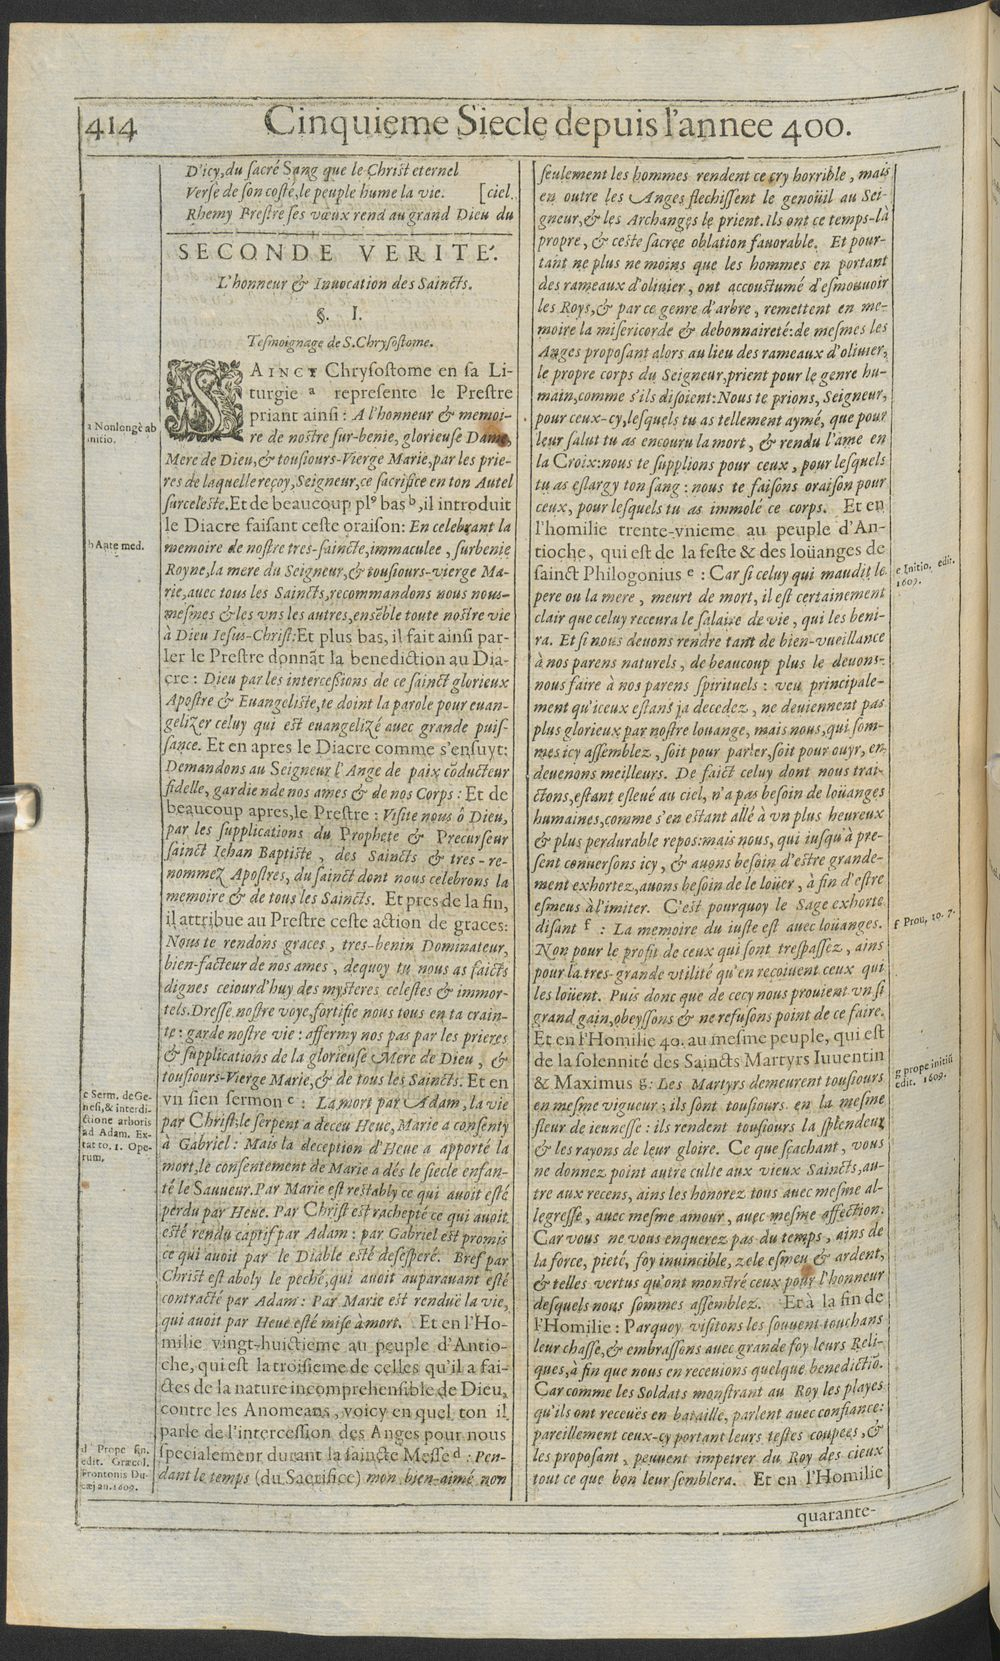 414
Cinquieme Siecle depuis l'annee 400.
D'icy, du sacré Sang que le Christ eternel
Versé de son costé, le peuple hume la vie. [ciel.
Rhemy Prestre ses vœux rend au grand Dieu du
SECONDE VERITE'.
L'honneur & Inuocation des Saincts.
§. I.
Tesmoignage de S. Chrysostome.
SAINCT Chrysostome en sa Li-
turgie ª represente le Prestre
priant ainsi : A l'honneur & memoi-
re de nostre sur-benie, glorieuse Dame,
Mere de Dieu, & tousiours-Vierge Marie, par les prie-
res de laquelle reçoy, Seigneur, ce sacrifice en ton Autel
surceleste. Et de beaucoup plº bas ᵇ, il introduit
le Diacre faisant ceste oraison: En celebrant la
memoire de nostre tres-saincte, immaculee, surbenie
Royne, la mere du Seigneur, & tousiours-vierge Ma-
rie, auec tous les Saincts, recommandons nous nous-
mesmes & les vns les autres, ensẽble toute nostre vie
à Dieu Iesus-Christ: Et plus bas, il fait ainsi par-
ler le Prestre donnãt la benediction au Dia-
cre : Dieu par les intercessions de ce sainct glorieux
Apostre & Euangeliste, te doint la parole pour euan-
gelizer celuy qui est euangelizé auec grande puis-
sance. Et en apres le Diacre comme s'ensuyt:
Demandons au Seigneur l'Ange de paix cõducteur
fidelle, gardien de nos ames & de nos Corps : Et de
beaucoup apres, le Prestre : Visite nous ô Dieu,
par les supplications du Prophete & Precurseur
sainct Iehan Baptiste, des Saincts & tres-re-
nommez Apostres, du sainct dont nous celebrons la
memoire & de tous les Saincts. Et pres de la fin,
il attribue au Prestre ceste action de graces:
Nous te rendons graces, tres-benin Dominateur,
bien-facteur de nos ames, dequoy tu nous as faicts
dignes ceiourd'huy des mysteres celestes & immor-
tels. Dresse nostre voye, fortifie nous tous en ta crain-
te : garde nostre vie : affermy nos pas par les prieres
& supplications de la glorieuse Mere de Dieu, &
tousiours-Vierge Marie, & de tous les Saincts. Et en
vn sien sermon ᶜ : La mort par Adam, la vie
par Christ; le serpent a deceu Heue, Marie a consenty
à Gabriel : Mais la deception d'Heue a apporté la
mort, le consentement de Marie a dés le siecle enfan-
té le Sauueur. Par Marie est restably ce qui auoit esté
perdu par Heue. Par Christ est rachepté ce qui auoit
esté rendu captif par Adam : par Gabriel est promis
ce qui auoit par le Diable esté desesperé. Bref par
Christ est aboly le peché, qui auoit auparauant esté
contracté par Adam : Par Marie est renduë la vie,
qui auoit par Heue esté mise à mort. Et en l'Ho-
milie vingt-huictieme au peuple d'Antio-
che, qui est la troisieme de celles qu'il a fai-
ctes de la nature incomprehensible de Dieu,
contre les Anomeans, voicy en quel ton il
parle de l'intercession des Anges pour nous
specialement durant la saincte Messe ᵈ : Pen-
dant le temps (du Sacrifice) mon bien-aimé non
a Non longè ab
initio.
b Ante med.
c Serm. de Ge-
nesi, & interdi-
ctione arboris
ad Adam. Ex-
tat to. 1. Ope-
rum.
d Prope fin.
edit. Græcol.
Frontonis Du-
cæi an. 1609.
seulement les hommes rendent ce cry horrible, mais
en outre les Anges flechissent le genoüil au Sei-
gneur, & les Archanges le prient. Ils ont ce temps-là
propre, & ceste sacree oblation fauorable. Et pour-
tant ne plus ne moins que les hommes en portant
des rameaux d'oliuier, ont accoustumé d'esmouuoir
les Roys, & par ce genre d'arbre, remettent en me-
moire la misericorde & debonnaireté: de mesmes les
Anges proposant alors au lieu des rameaux d'oliuier,
le propre corps du Seigneur, prient pour le genre hu-
main, comme s'ils disoient: Nous te prions, Seigneur,
pour ceux-cy, lesquels tu as tellement aymé, que pour
leur salut tu as encouru la mort, & rendu l'ame en
la Croix: nous te supplions pour ceux, pour lesquels
tu as eslargy ton sang : nous te faisons oraison pour
ceux, pour lesquels tu as immolé ce corps. Et en
l'homilie trente-vnieme au peuple d'An-
tioche, qui est de la feste & des loüanges de
sainct Philogonius ᵉ : Car si celuy qui maudit le
pere ou la mere, meurt de mort, il est certainement
clair que celuy receura le salaire de vie, qui les beni-
ra. Et si nous deuons rendre tant de bien-vueillance
à nos parens naturels, de beaucoup plus le deuons-
nous faire à nos parens spirituels : veu principale-
ment qu'iceux estans ja decedez, ne deuiennent pas
plus glorieux par nostre louange, mais nous, qui som-
mes icy assemblez, soit pour parler, soit pour ouyr, en
deuenons meilleurs. De faict celuy dont nous trai-
ctons, estant esleué au ciel, n'a pas besoin de loüanges
humaines, comme s'en estant allé à vn plus heureux
& plus perdurable repos: mais nous, qui iusqu'à pre-
sent conuersons icy, & auons besoin d'estre grande-
ment exhortez, auons besoin de le loüer, à fin d'estre
esmeus à l'imiter. C'est pourquoy le Sage exhorte
disant ᶠ : La memoire du iuste est auec loüanges.
Non pour le profit de ceux qui sont trespassez, ains
pour la tres-grande vtilité qu'en reçoiuent ceux qui
les loüent. Puis donc que de cecy nous prouient vn si
grand gain, obeyssons & ne refusons point de ce faire.
Et en l'Homilie 40. au mesme peuple, qui est
de la solennité des Saincts Martyrs Iuuentin
& Maximus g: Les Martyrs demeurent tousiours
en mesme vigueur; ils sont tousiours en la mesme
fleur de ieunesse : ils rendent tousiours la splendeur
& les rayons de leur gloire. Ce que sçachant, vous
ne donnez point autre culte aux vieux Saincts, au-
tre aux recens, ains les honorez tous auec mesme al-
legresse, auec mesme amour, auec mesme affection.
Car vous ne vous enquerez pas du temps, ains de
la force, pieté, foy inuincible, zele esmeu & ardent,
& telles vertus qu'ont monstré ceux pour l'honneur
desquels nous sommes assemblez. Et à la fin de
l'Homilie : Parquoy visitons les souuent touchans
leur chasse, & embrassons auec grande foy leurs Reli-
ques, à fin que nous en receuions quelque benedictiõ.
Car comme les Soldats monstrant au Roy les playes
qu'ils ont receuës en bataille, parlent auec confiance:
pareillement ceux-cy portant leurs testes coupees, &
les proposant, peuuent impetrer du Roy des cieux
tout ce que bon leur semblera. Et en l'Homilie
e Initio, edit.
1609.
f Prou, 10. 7.
g prope initiū
edit. 1609.
quarante-